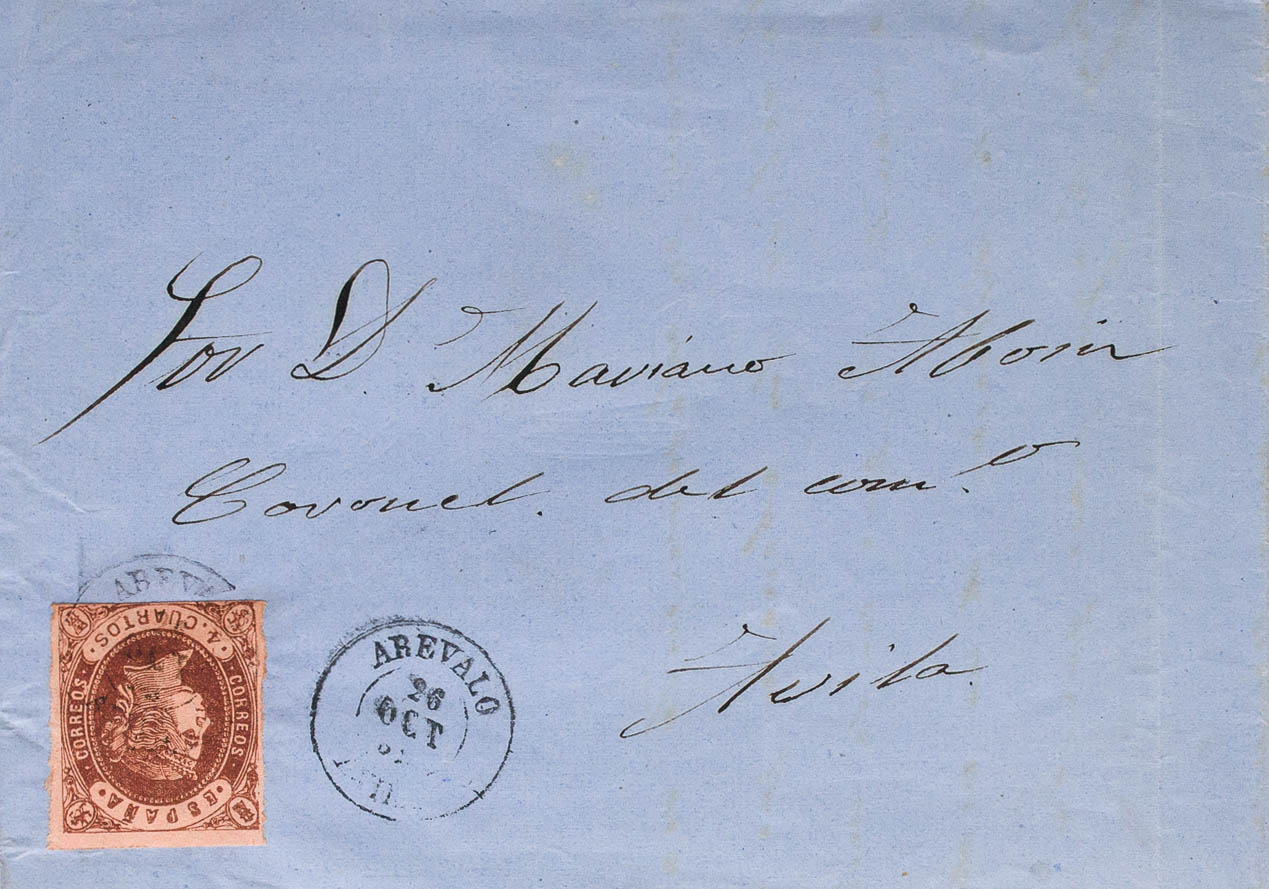 Sor D. Mariano Aboin
Coronel. del com.º
Avila.
AREVA
4. CUARTOS.
CORREOS.
CORREOS.
ESPAÑA
AREVALO
26
OCT